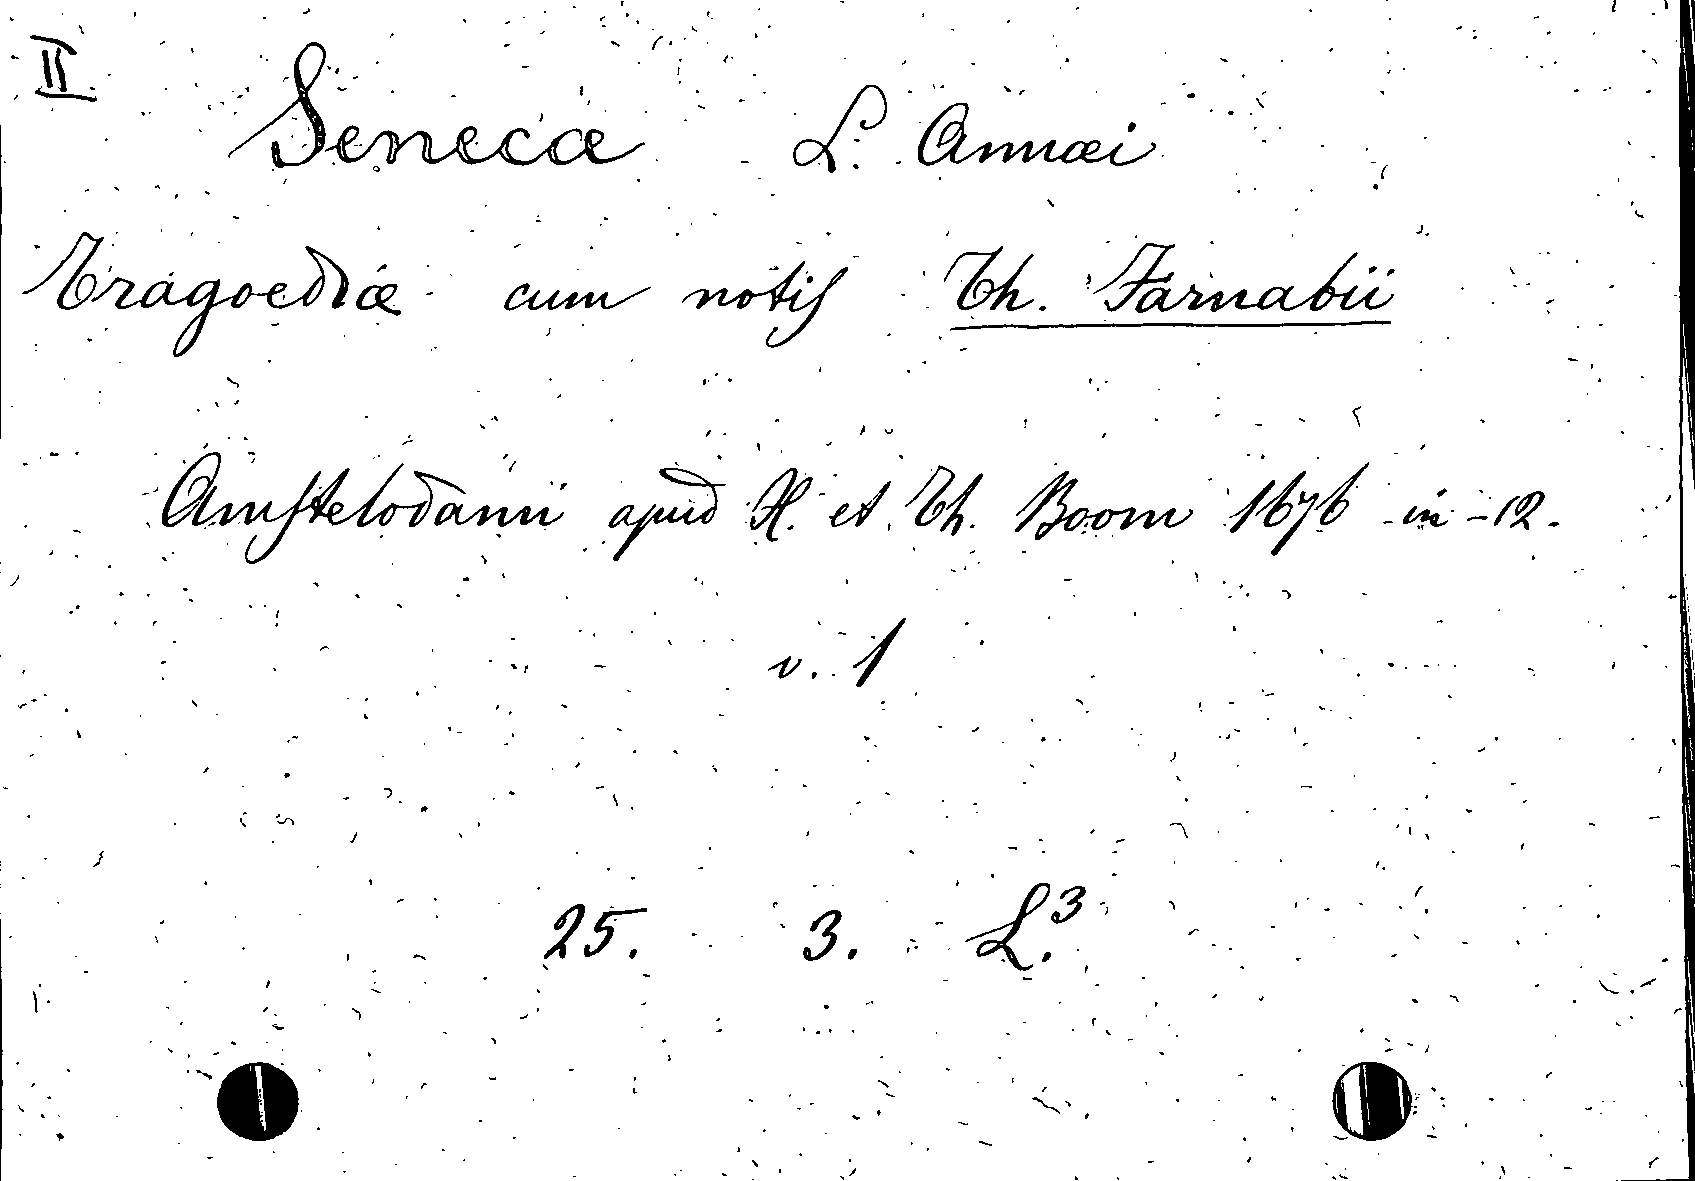 II
Senecæ L. Annæi
Tragoediæ cum notis Th. Farnabii
Amstelodami apud H. et Th. Boom 1676 in-12.
v. 1
25. 3. L.³